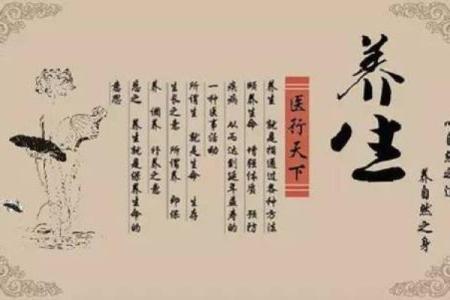 养自然之身
养生
医行天下
养生 就是指通过各种方法
颐养生命 增强体质 预防
疾病 从而达到延年益寿的
一种医事活动
所谓生 就是生命 生存
生长之意 所谓养 即保
养 调养 补养之意
总之 养生就是保养生命的
意思